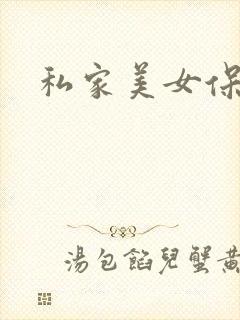 私家美女保
湯包餡兒蟹黃